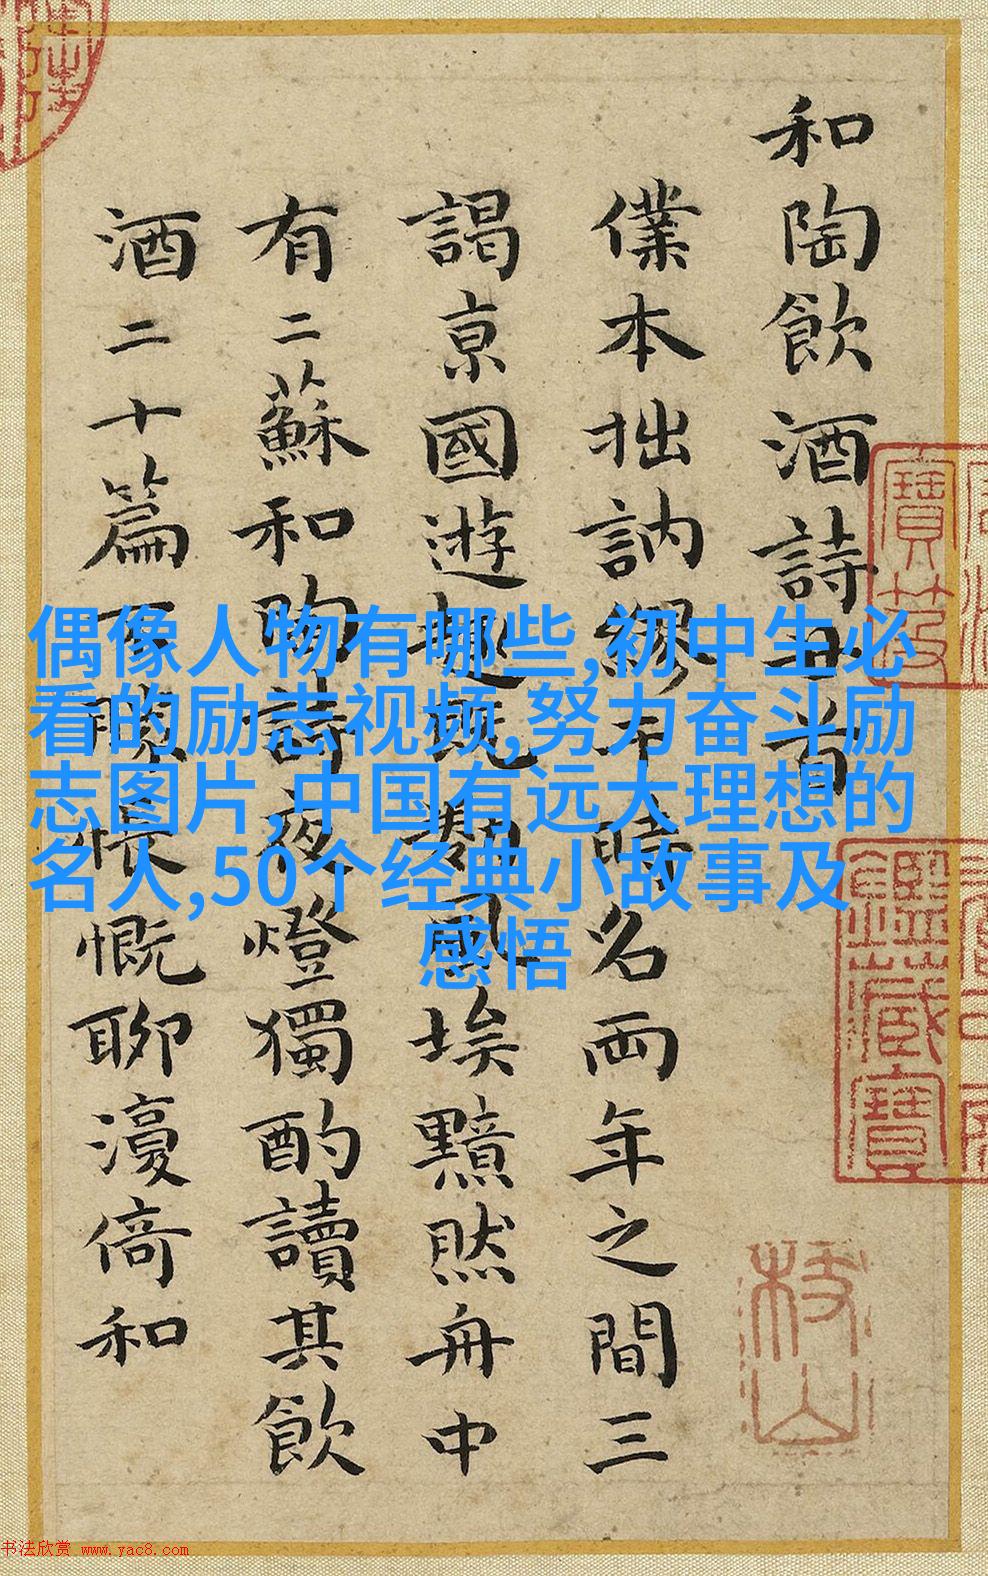 和陶飲酒詩五首
僕本拙訥繆干時名兩年之間三
謁京國遊趨既風埃黯然舟中
有二蘇和陶詩夜燈獨酌讀其飲
酒二十篇不勝悵慨聊濅倚和
偶像人物有哪些,初中生必
看的励志视频,努力奋斗励
志图片,中国有远大理想的
名人,50个经典小故事及
感悟
枝山
书法欣赏 www.yac8.com